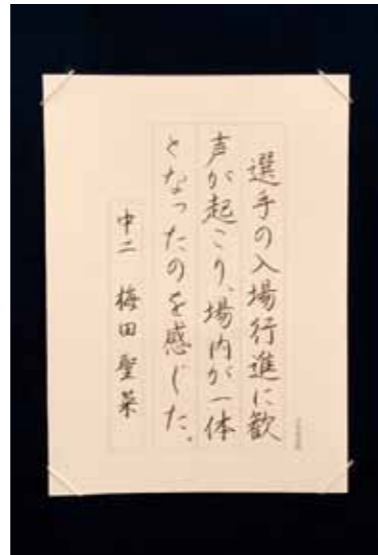 選手の入場行進に歓
声が起こり、場内が一体
となったのを感じた。
中二 梅田聖菜